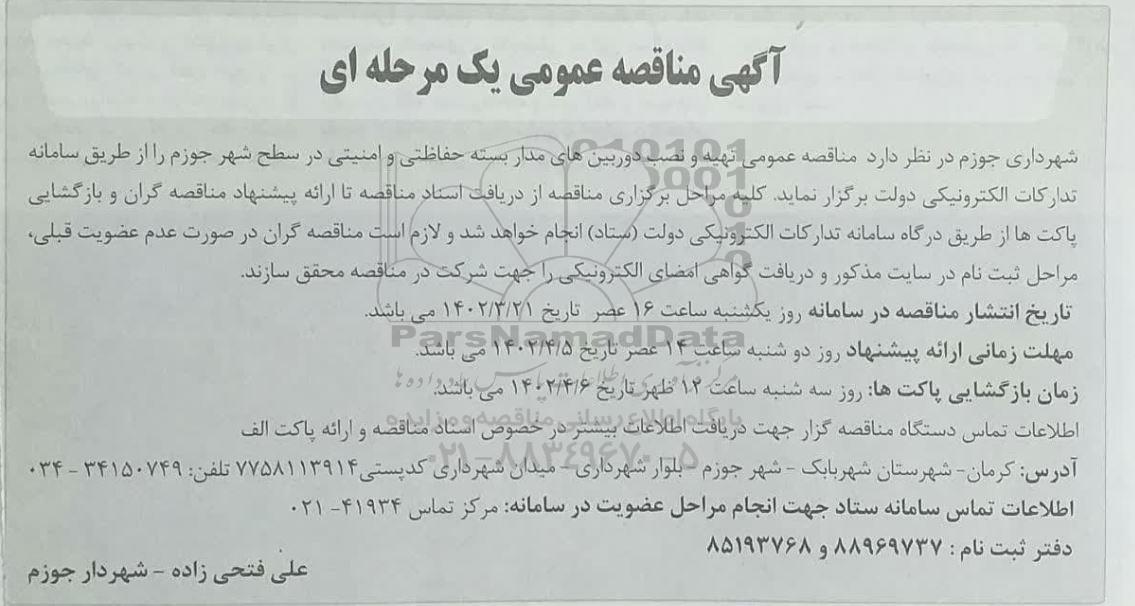 آگهی مناقصه عمومی یک مرحله ای
شهرداری جوزم در نظر دارد مناقصه عمومی تهیه و نصب دوربین های مدار بسته حفاظتی و امنیتی در سطح شهر جوزم را از طریق سامانه
تدارکات الکترونیکی دولت برگزار نماید. کلیه مراحل برگزاری مناقصه از دریافت اسناد مناقصه تا ارائه پیشنهاد مناقصه گران و بازگشایی
پاکت ها از طریق درگاه سامانه تدارکات الکترونیکی دولت (ستاد) انجام خواهد شد و لازم است مناقصه گران در صورت عدم عضویت قبلی،
مراحل ثبت نام در سایت مذکور و دریافت گواهی امضای الکترونیکی را جهت شرکت در مناقصه محقق سازند.
تاریخ انتشار مناقصه در سامانه روز یکشنبه ساعت ۱۶ عصر تاریخ ۱۴۰۲/۳/۲۱ می باشد.
ParsNamadData
مهلت زمانی ارائه پیشنهاد روز دو شنبه ساعت ۱۴ عصر تاریخ ۱۴۰۲/۴/۵ می باشد.
زمان بازگشایی پاکت ها: روز سه شنبه ساعت ۱۲ ظهر تاریخ ۱۴۰۲/۴/۶ می باشد.
پایگاه اطلاع رسانی مناقصه و مزایده
اطلاعات تماس دستگاه مناقصه گزار جهت دریافت اطلاعات بیشتر در خصوص اسناد مناقصه و ارائه پاکت الف
۰۲۱-۸۸۳۴۹۶۷۰-۵
آدرس: کرمان- شهرستان شهربابک - شهر جوزم - بلوار شهرداری - میدان شهرداری کدپستی ۷۷۵۸۱۱۳۹۱۴ تلفن: ۳۴۱۵۰۷۴۹ - ۰۳۴
اطلاعات تماس سامانه ستاد جهت انجام مراحل عضویت در سامانه: مرکز تماس ۴۱۹۳۴- ۰۲۱
دفتر ثبت نام : ۸۸۹۶۹۷۳۷ و ۸۵۱۹۳۷۶۸
علی فتحی زاده - شهردار جوزم